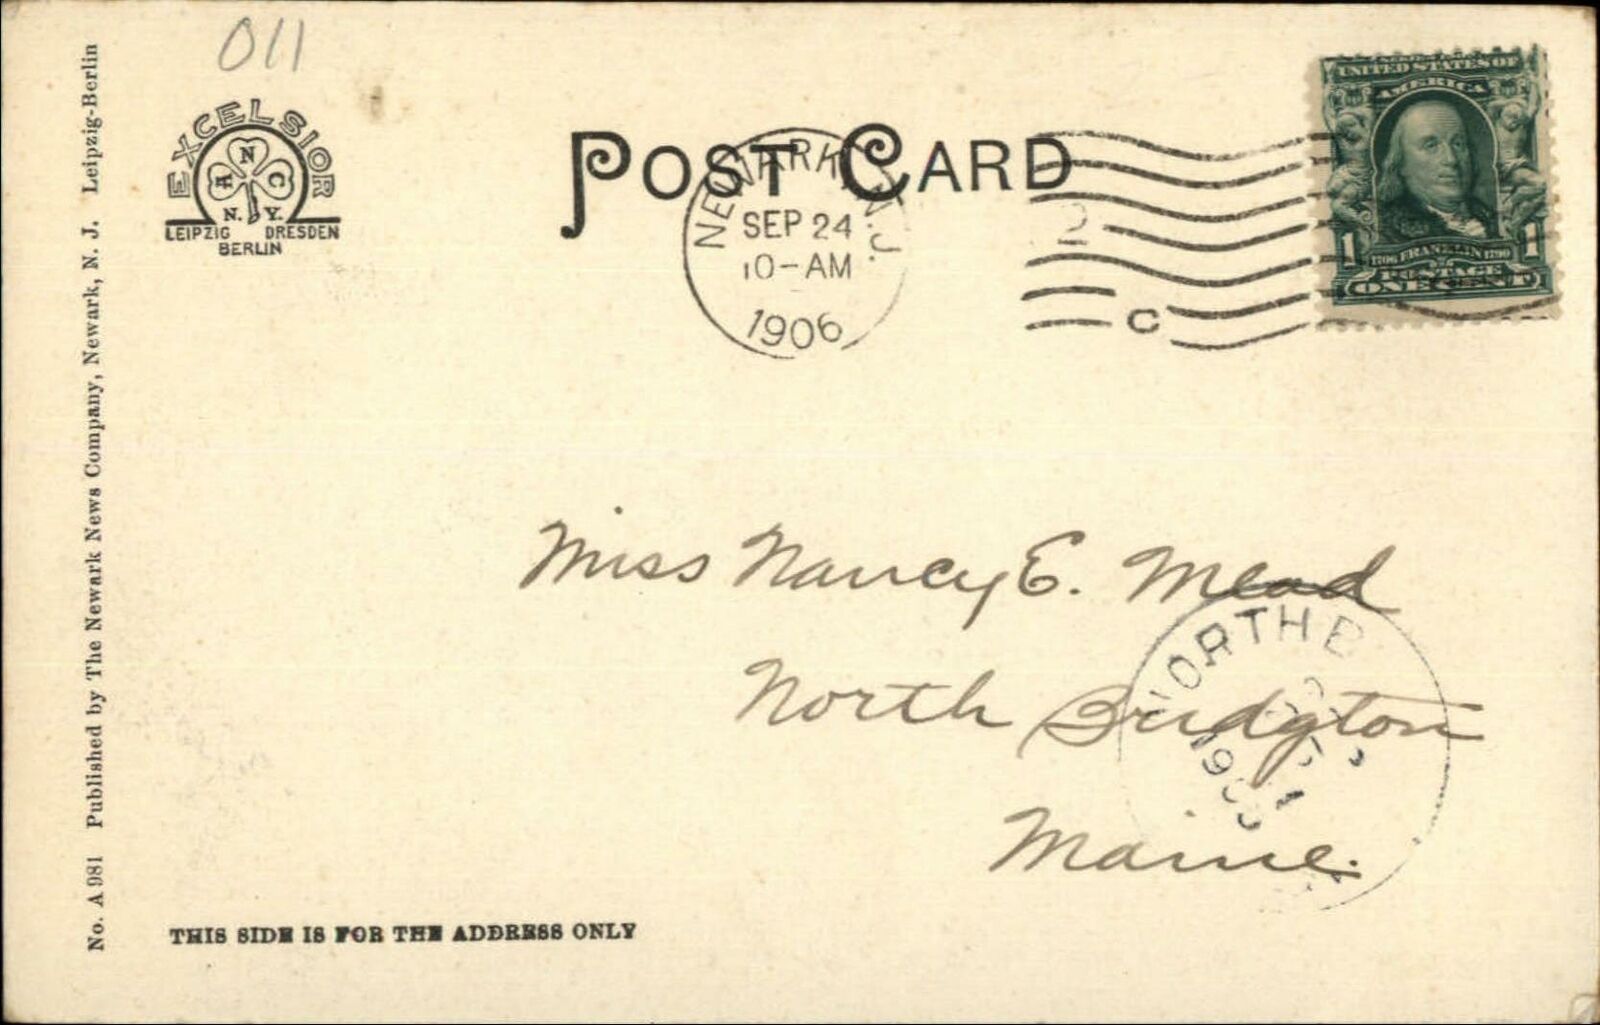 011
EXCELSIOR
A N C
N. Y.
LEIPZIG DRESDEN
BERLIN
POST CARD
NEWARK, N.J.
SEP 24
10-AM
1906
2
C
UNITED STATES OF
AMERICA
1 1
1706 FRANKLIN 1790
POSTAGE
ONE CENT
Miss Nancy E. Mead
North Bridgton
Maine.
NORTH B
THIS SIDE IS FOR THE ADDRESS ONLY
No. A 981 Published by The Newark News Company, Newark, N. J. Leipzig-Berlin